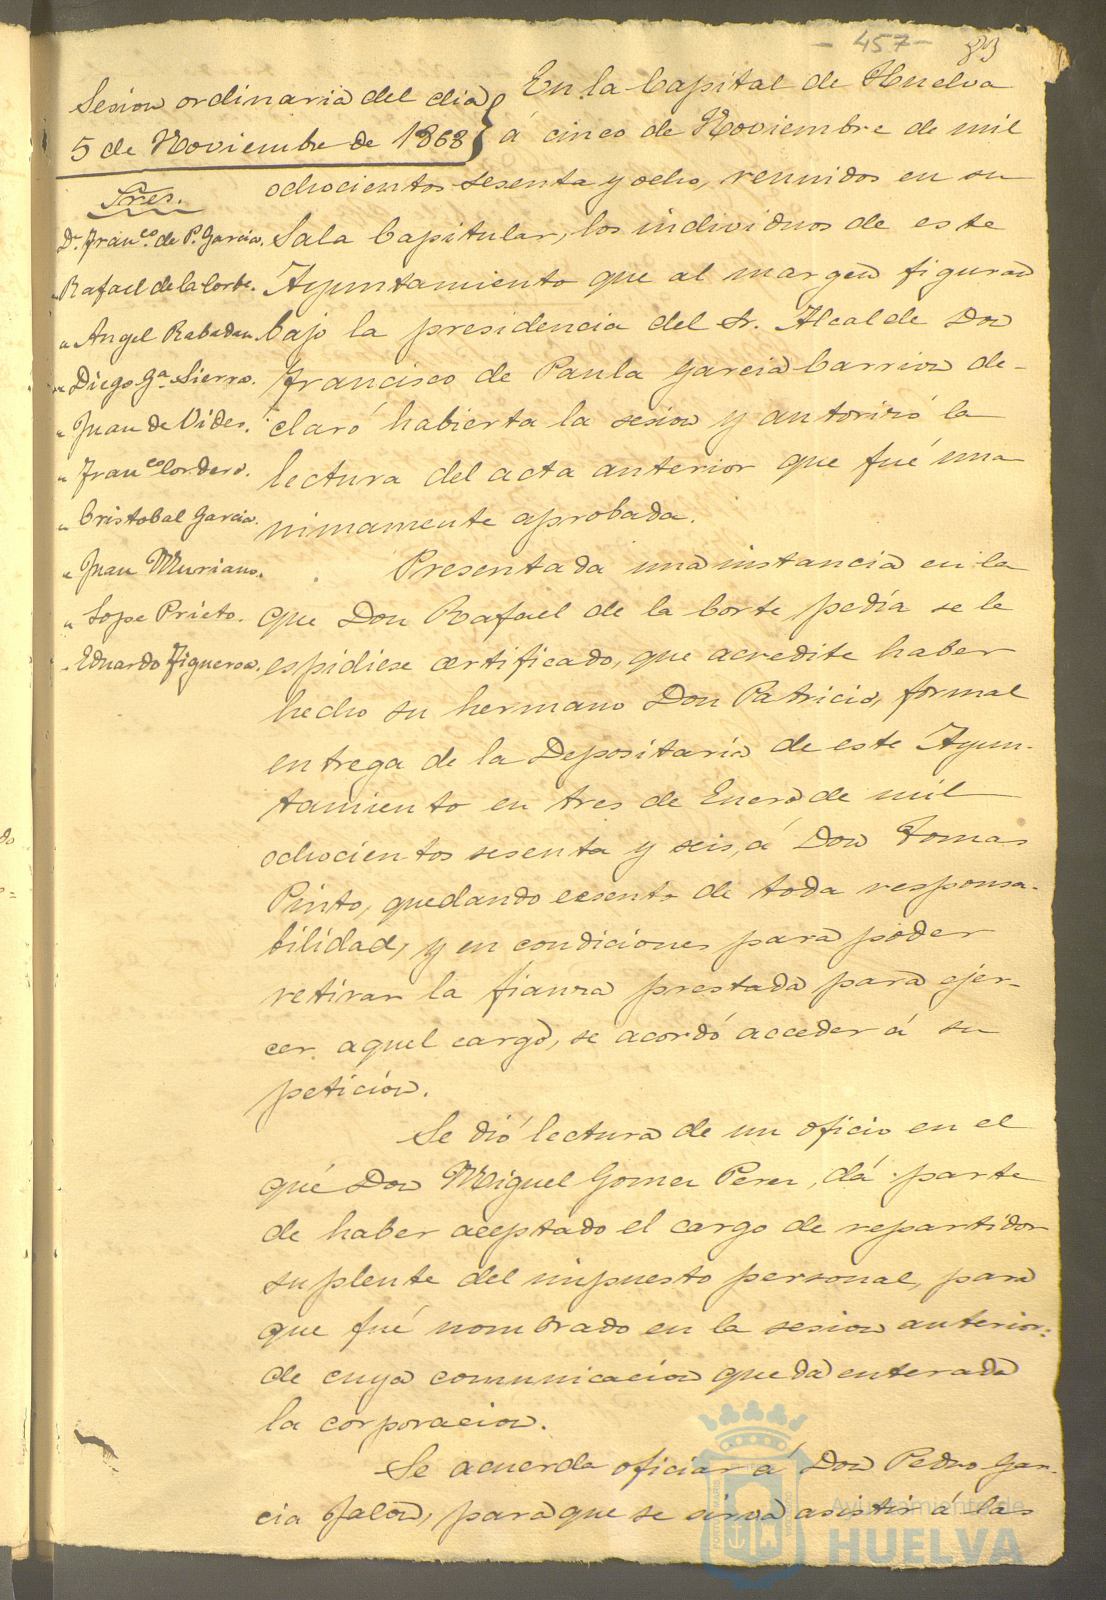 - 457 - 83
Sesion ordinaria del dia
5 de Noviembre de 1868
Sres.
Dn. Franco. de P. Garcia.
" Rafael de la Corte.
" Angel Rabadan.
" Diego Ga. Sierra.
" Juan de Vides.
" Franco Cordero.
" Cristobal Garcia.
" Juan Muriano.
" Lope Prieto.
" Eduardo Figueroa.
En la Capital de Huelva
á cinco de Noviembre de mil
ochocientos sesenta y ocho, reunidos en su
Sala Capitular, los individuos de este
Ayuntamiento que al margen figuran
bajo la presidencia del Sr. Alcalde Don
Francisco de Paula Garcia Barrion de-
claró habierta la sesion y autorizó la
lectura del acta anterior que fué una
nimamente aprobada.
Presentada una instancia en la
que Don Rafael de la Corte pedia se le
espidiese certificado, que acredite haber
hecho su hermano Don Patricio, formal
entrega de la Depositaria de este Ayun-
tamiento en tres de Enero de mil
ochocientos sesenta y seis, á Don Tomas
Pinto, quedando ecsento de toda responsa-
bilidad, y en condiciones para poder
retirar la fianza prestada para ejer-
cer aquel cargo, se acordó acceder á su
petición.
Se dió lectura de un oficio en el
qué Don Miguel Gomez Perez, dá parte
de haber aceptado el cargo de repartidor
suplente del impuesto personal, para
que fué nombrado en la sesion anterior:
de cuya comunicacion queda enterada
la corporacion.
Se acuerda oficiar á Don Pedro Gar-
cia Jalon, para que se sirva asistir á las
Ayuntamiento de
HUELVA